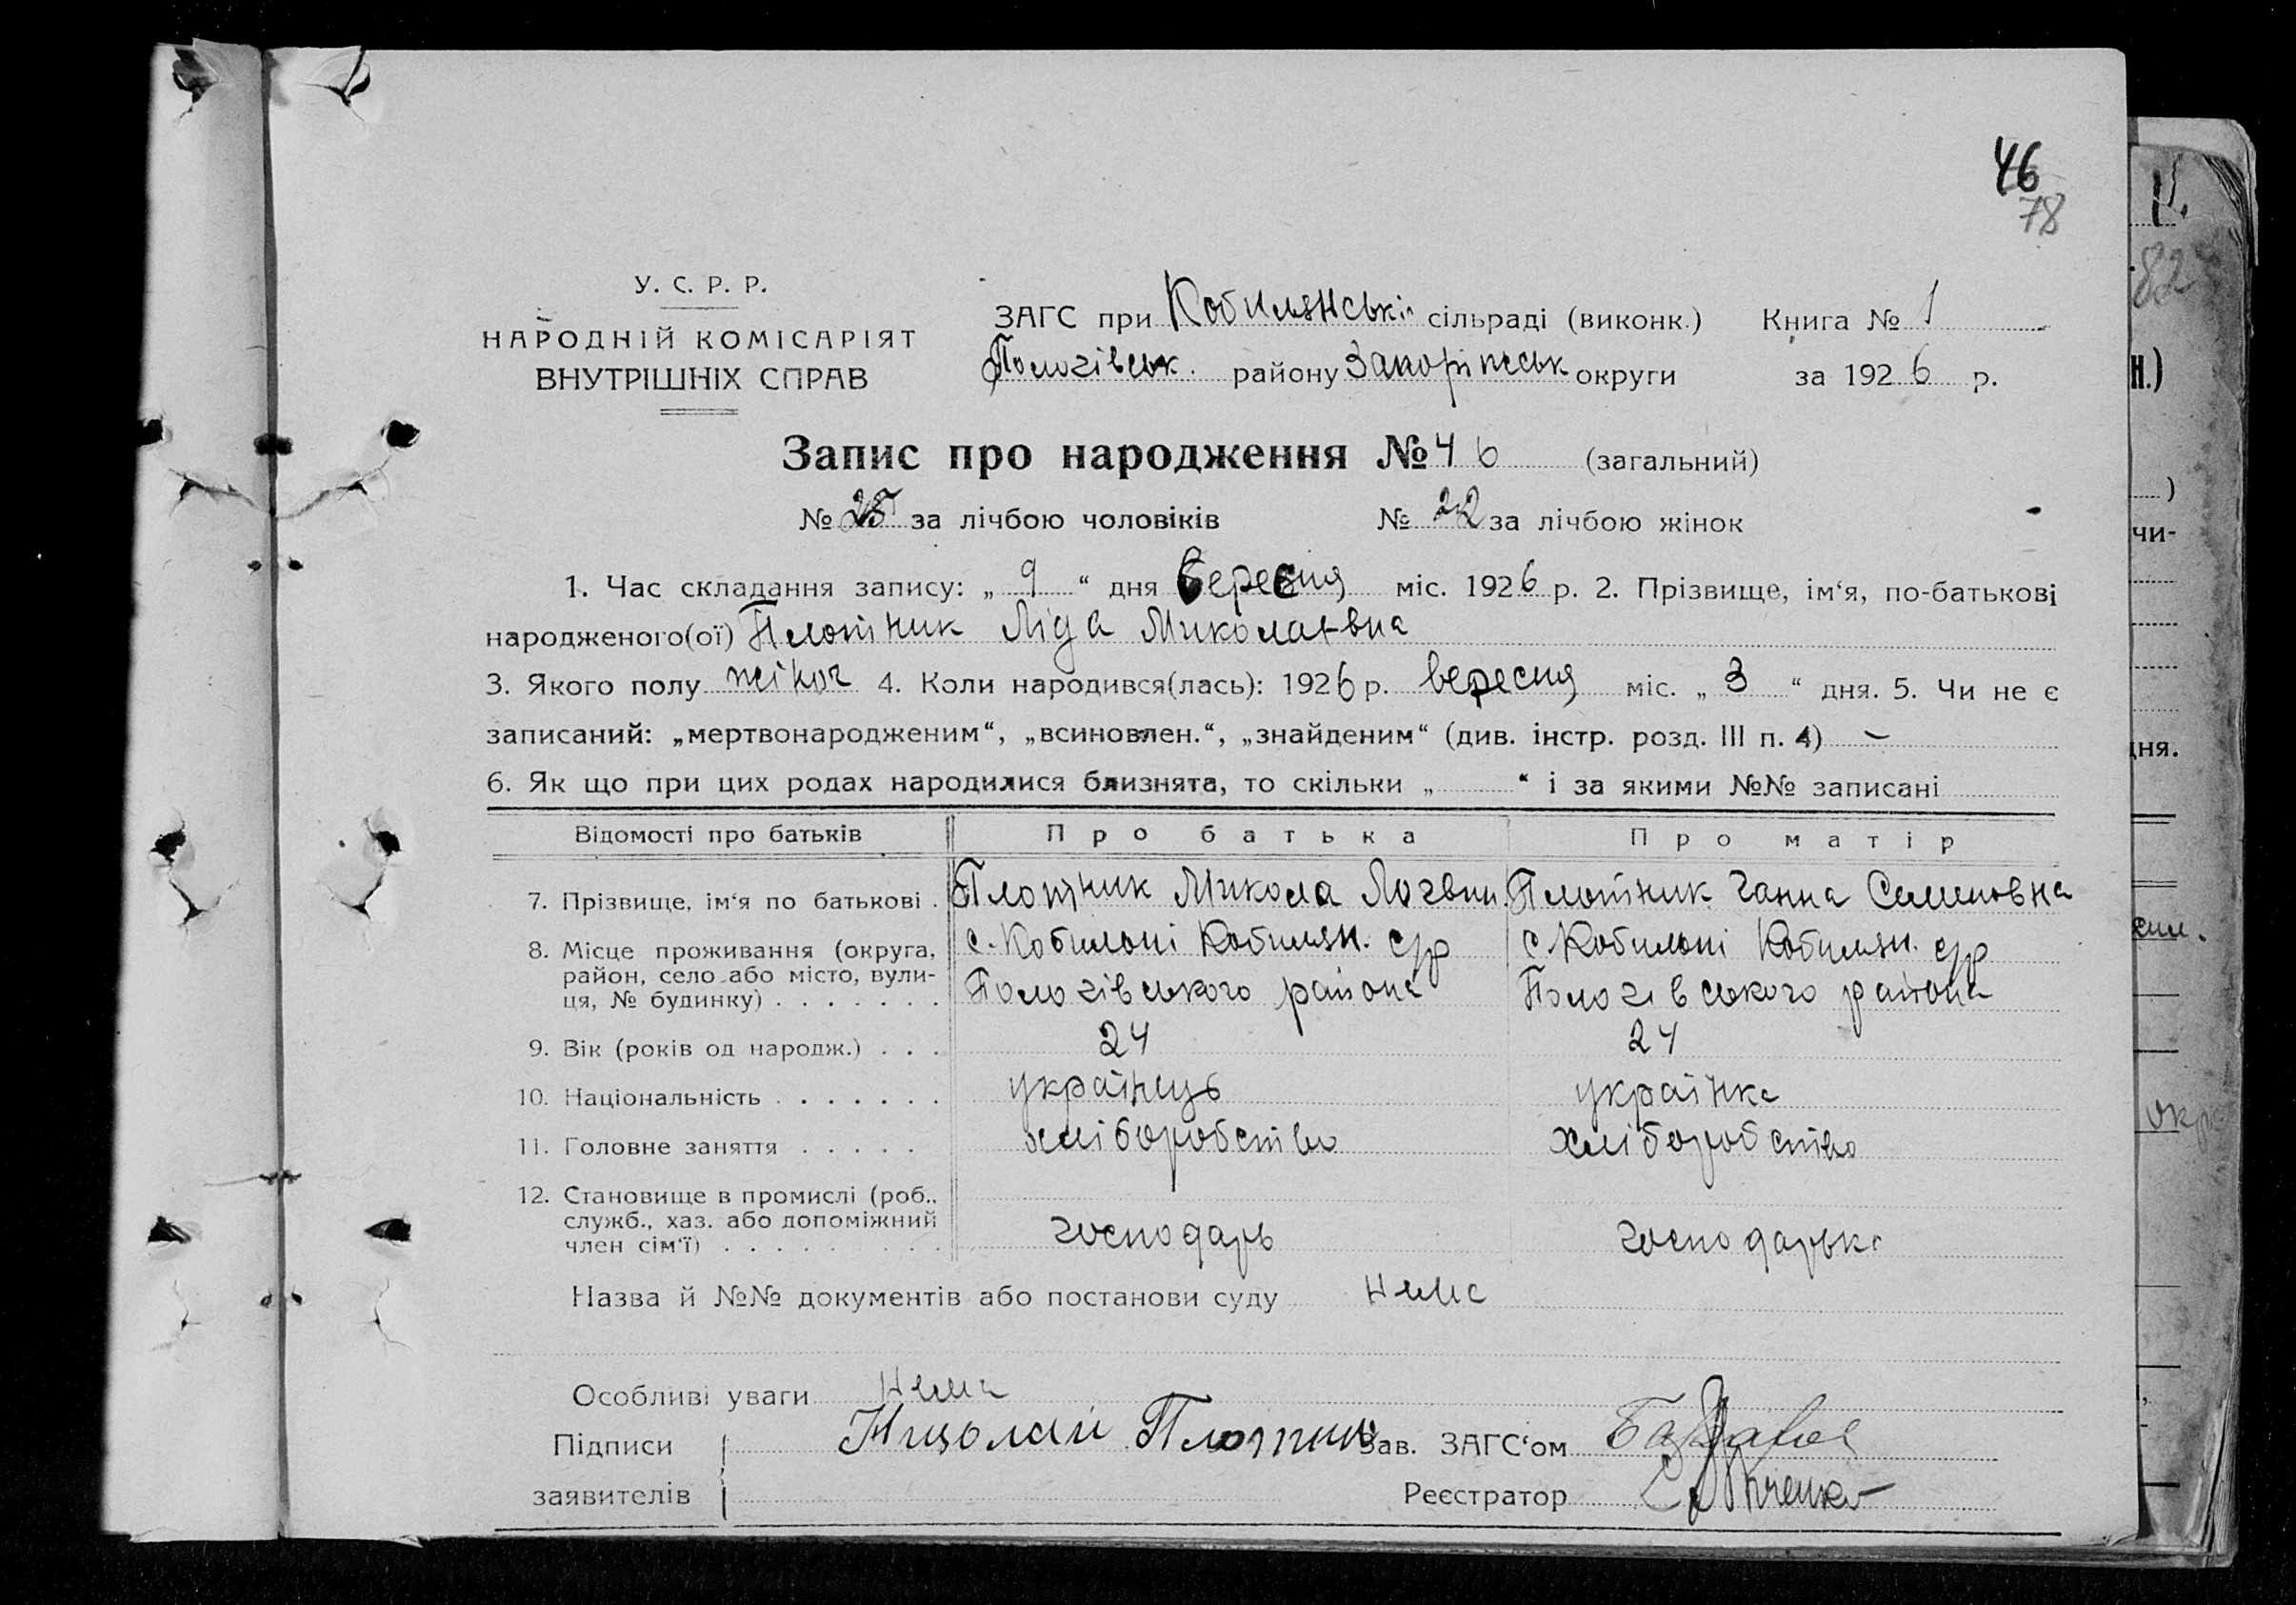 46
78
У. С. Р. Р.
НАРОДНІЙ КОМІСАРІЯТ
ВНУТРІШНІХ СПРАВ
ЗАГС при Кобилянські сільраді (виконк.) Книга № 1
Пологівськ. району Запоріжськ округи за 1926 р.
Запис про народження № 46 (загальний)
№ 25 за лічбою чоловіків № 22 за лічбою жінок
1. Час складання запису: „ 9 “ дня вересня міс. 1926 р. 2. Прізвище, ім‘я, по-батькові
народженого(ої) Плотник Ліда Миколаівна
3. Якого полу жіноч 4. Коли народився(лась): 1926 р. вересня міс. „ 3 “ дня. 5. Чи не є
записаний: „мертвонародженим“, „всиновлен.“, „знайденим“ (див. інстр. розд. III п. 4) –
6. Як що при цих родах народилися близнята, то скільки „ “ і за якими №№ записані
Відомості про батьків Про батька Про матір
7. Прізвище, ім‘я по батькові . Плотник Микола Логвин. Плотник Ганна Семеновна
8. Місце проживання (округа, с. Кобилоні Кобилян. с/р с. Кобилоні Кобилян. с/р
район, село або місто, вули-
ця, № будинку) . . . . . . . Пологівського района Пологівського района
9. Вік (років од народж.) . . . 24 24
10. Національність . . . . . . . українець українка
11. Головне заняття . . . . . хліборобство хліборобство
12. Становище в промислі (роб.,
служб., хаз. або допоміжний
член сім‘ї) . . . . . . . . . господарь господарька
Назва й №№ документів або постанови суду нема
Особливі уваги нема
Підписи Николай Плотник Зав. ЗАГС‘ом
заявителів Реєстратор